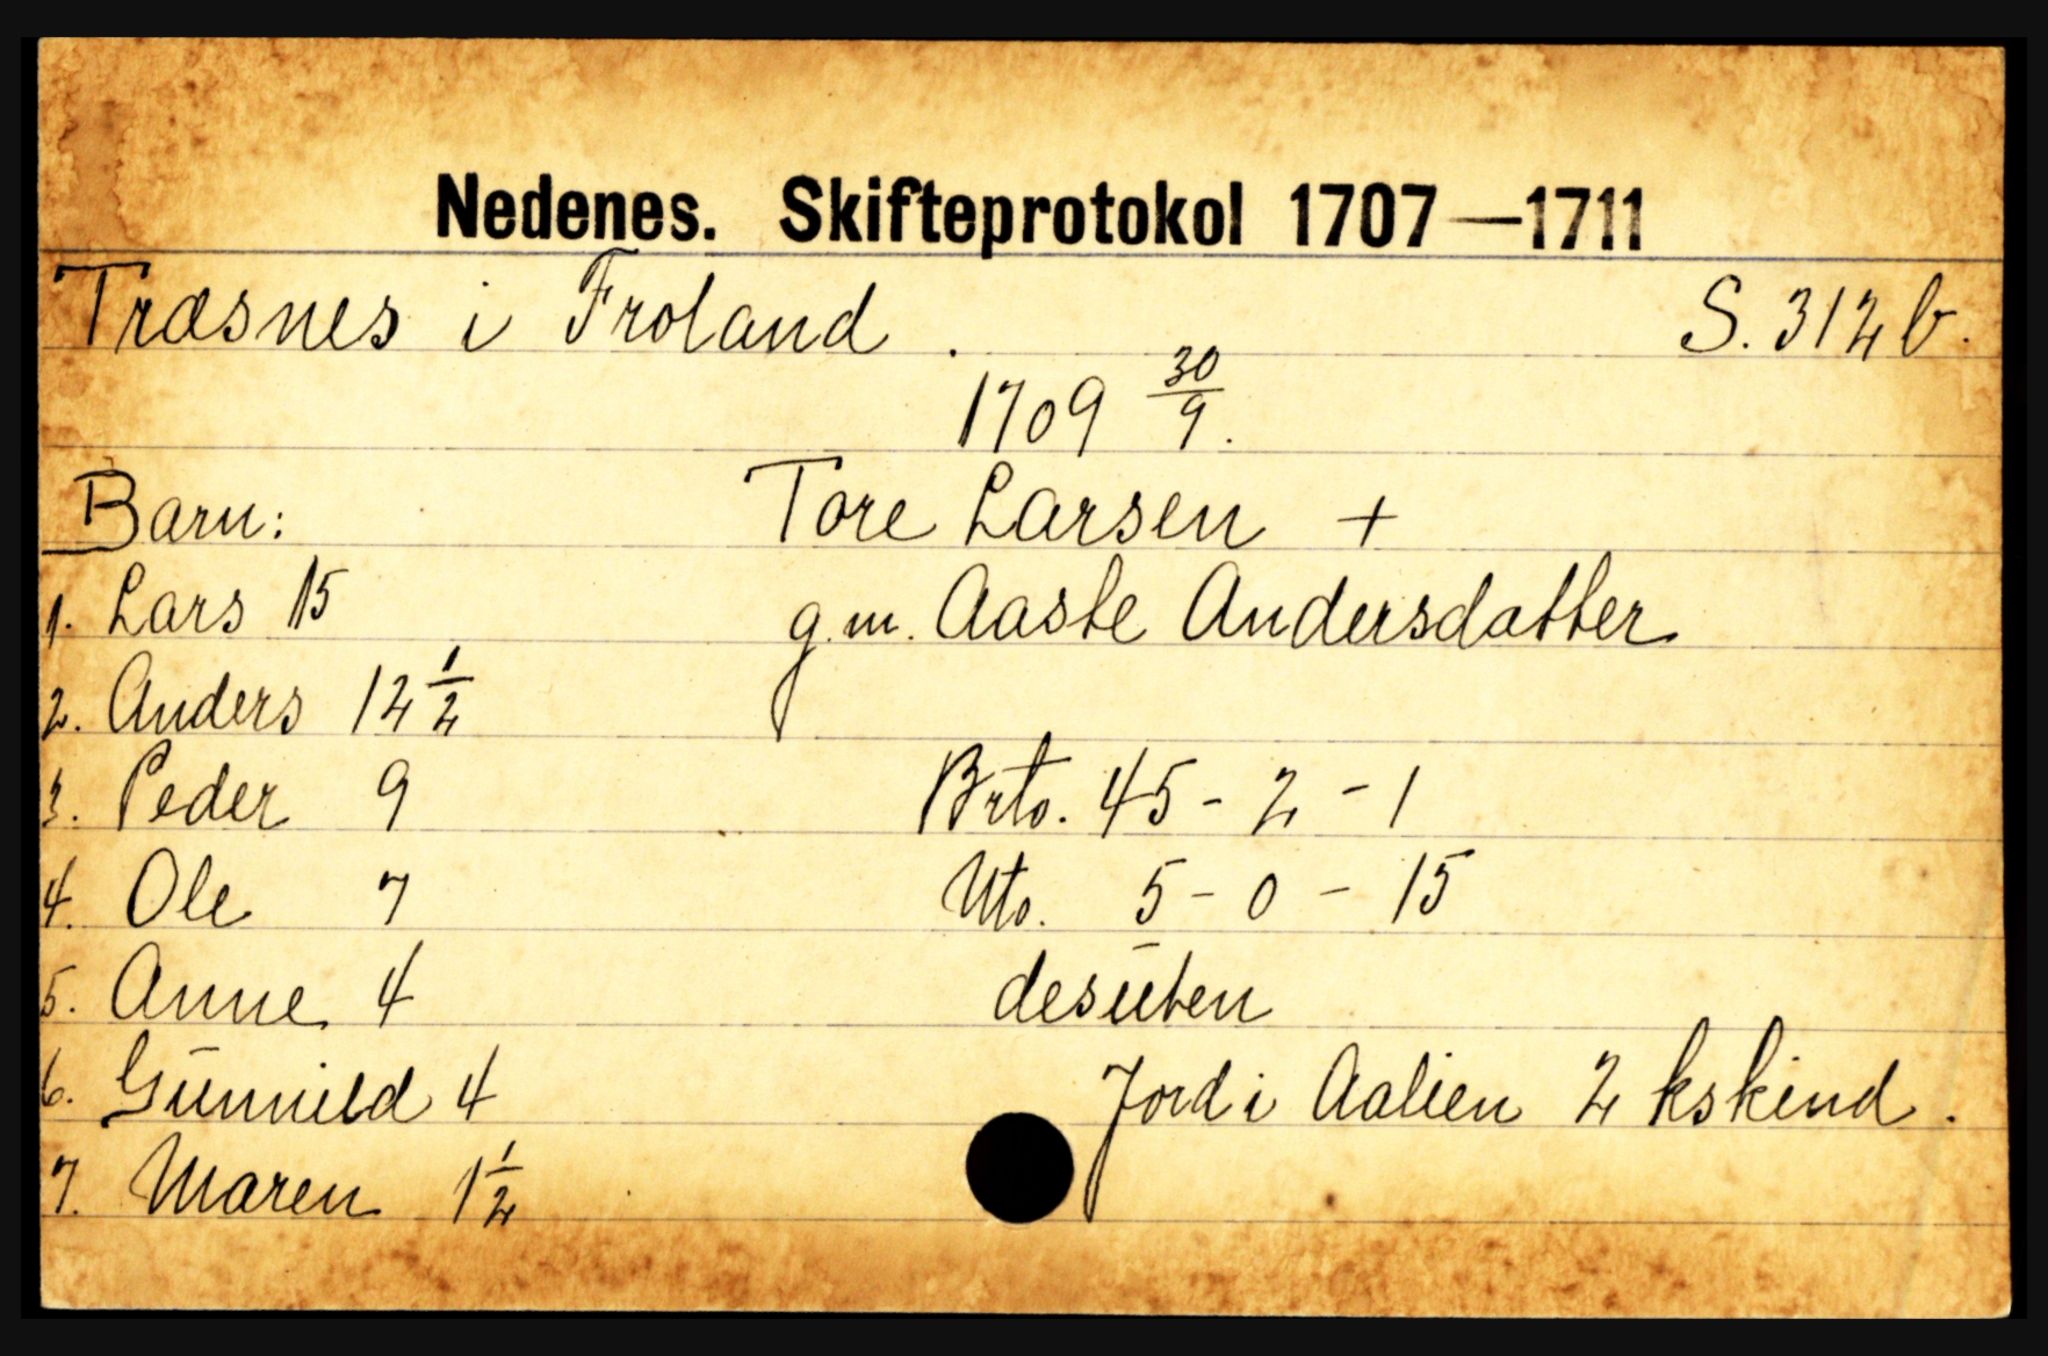 Nedenes. Skifteprotokol 1707—1711
Træsnes i Froland. S. 312 b.
1709 30/9.
Barn: Tore Larsen +
1. Lars 15 g.m. Aaste Andersdatter
2. Anders 12 1/2
3. Peder 9 Brto. 45 - 2 - 1
4. Ole 7 Nto. 5 - 0 - 15
5. Anne 4 desūten
6. Gūnnild 4 Jord i Aalien 2 kskind.
7. Maren 1 1/2